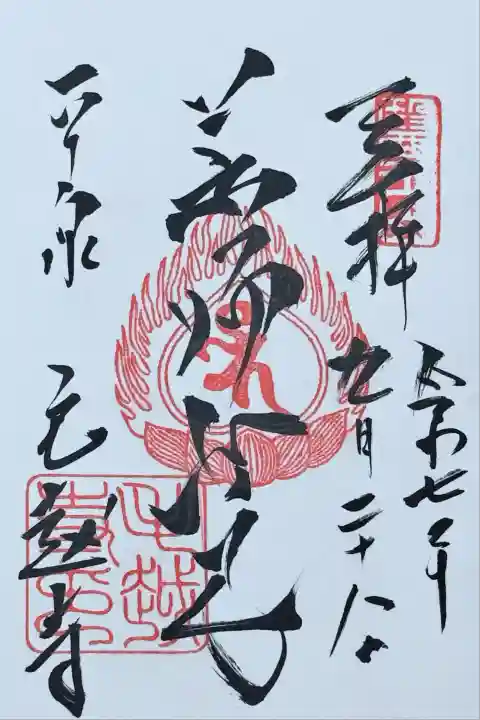 奉拝
令和七年
九月二十八日
薬師如来
平泉 毛越寺